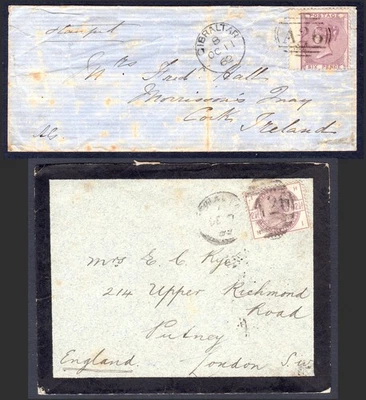 Stamped
GIBRALTAR
B
OC 11
62
A26
POSTAGE
SIX PENCE
Mrs Fredk Hall
Morrisson's Quay
Cork
Ireland
A26
Mrs E. C. Rye
214 Upper Richmond
Road
Putney
England. London S.W.